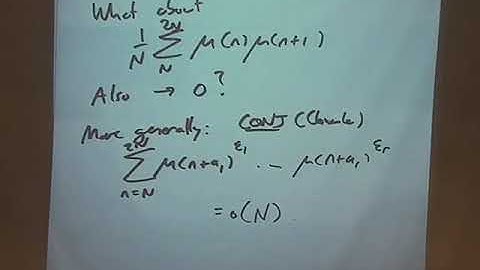 What about
1/N ∑_N^{2N} μ(n)μ(n+1)
Also → 0 ?
More generally: CONJ (Chowla)
∑_{n=N}^{2N} μ(n+a_1)^{ε_1} ... μ(n+a_r)^{ε_r}
= o(N)